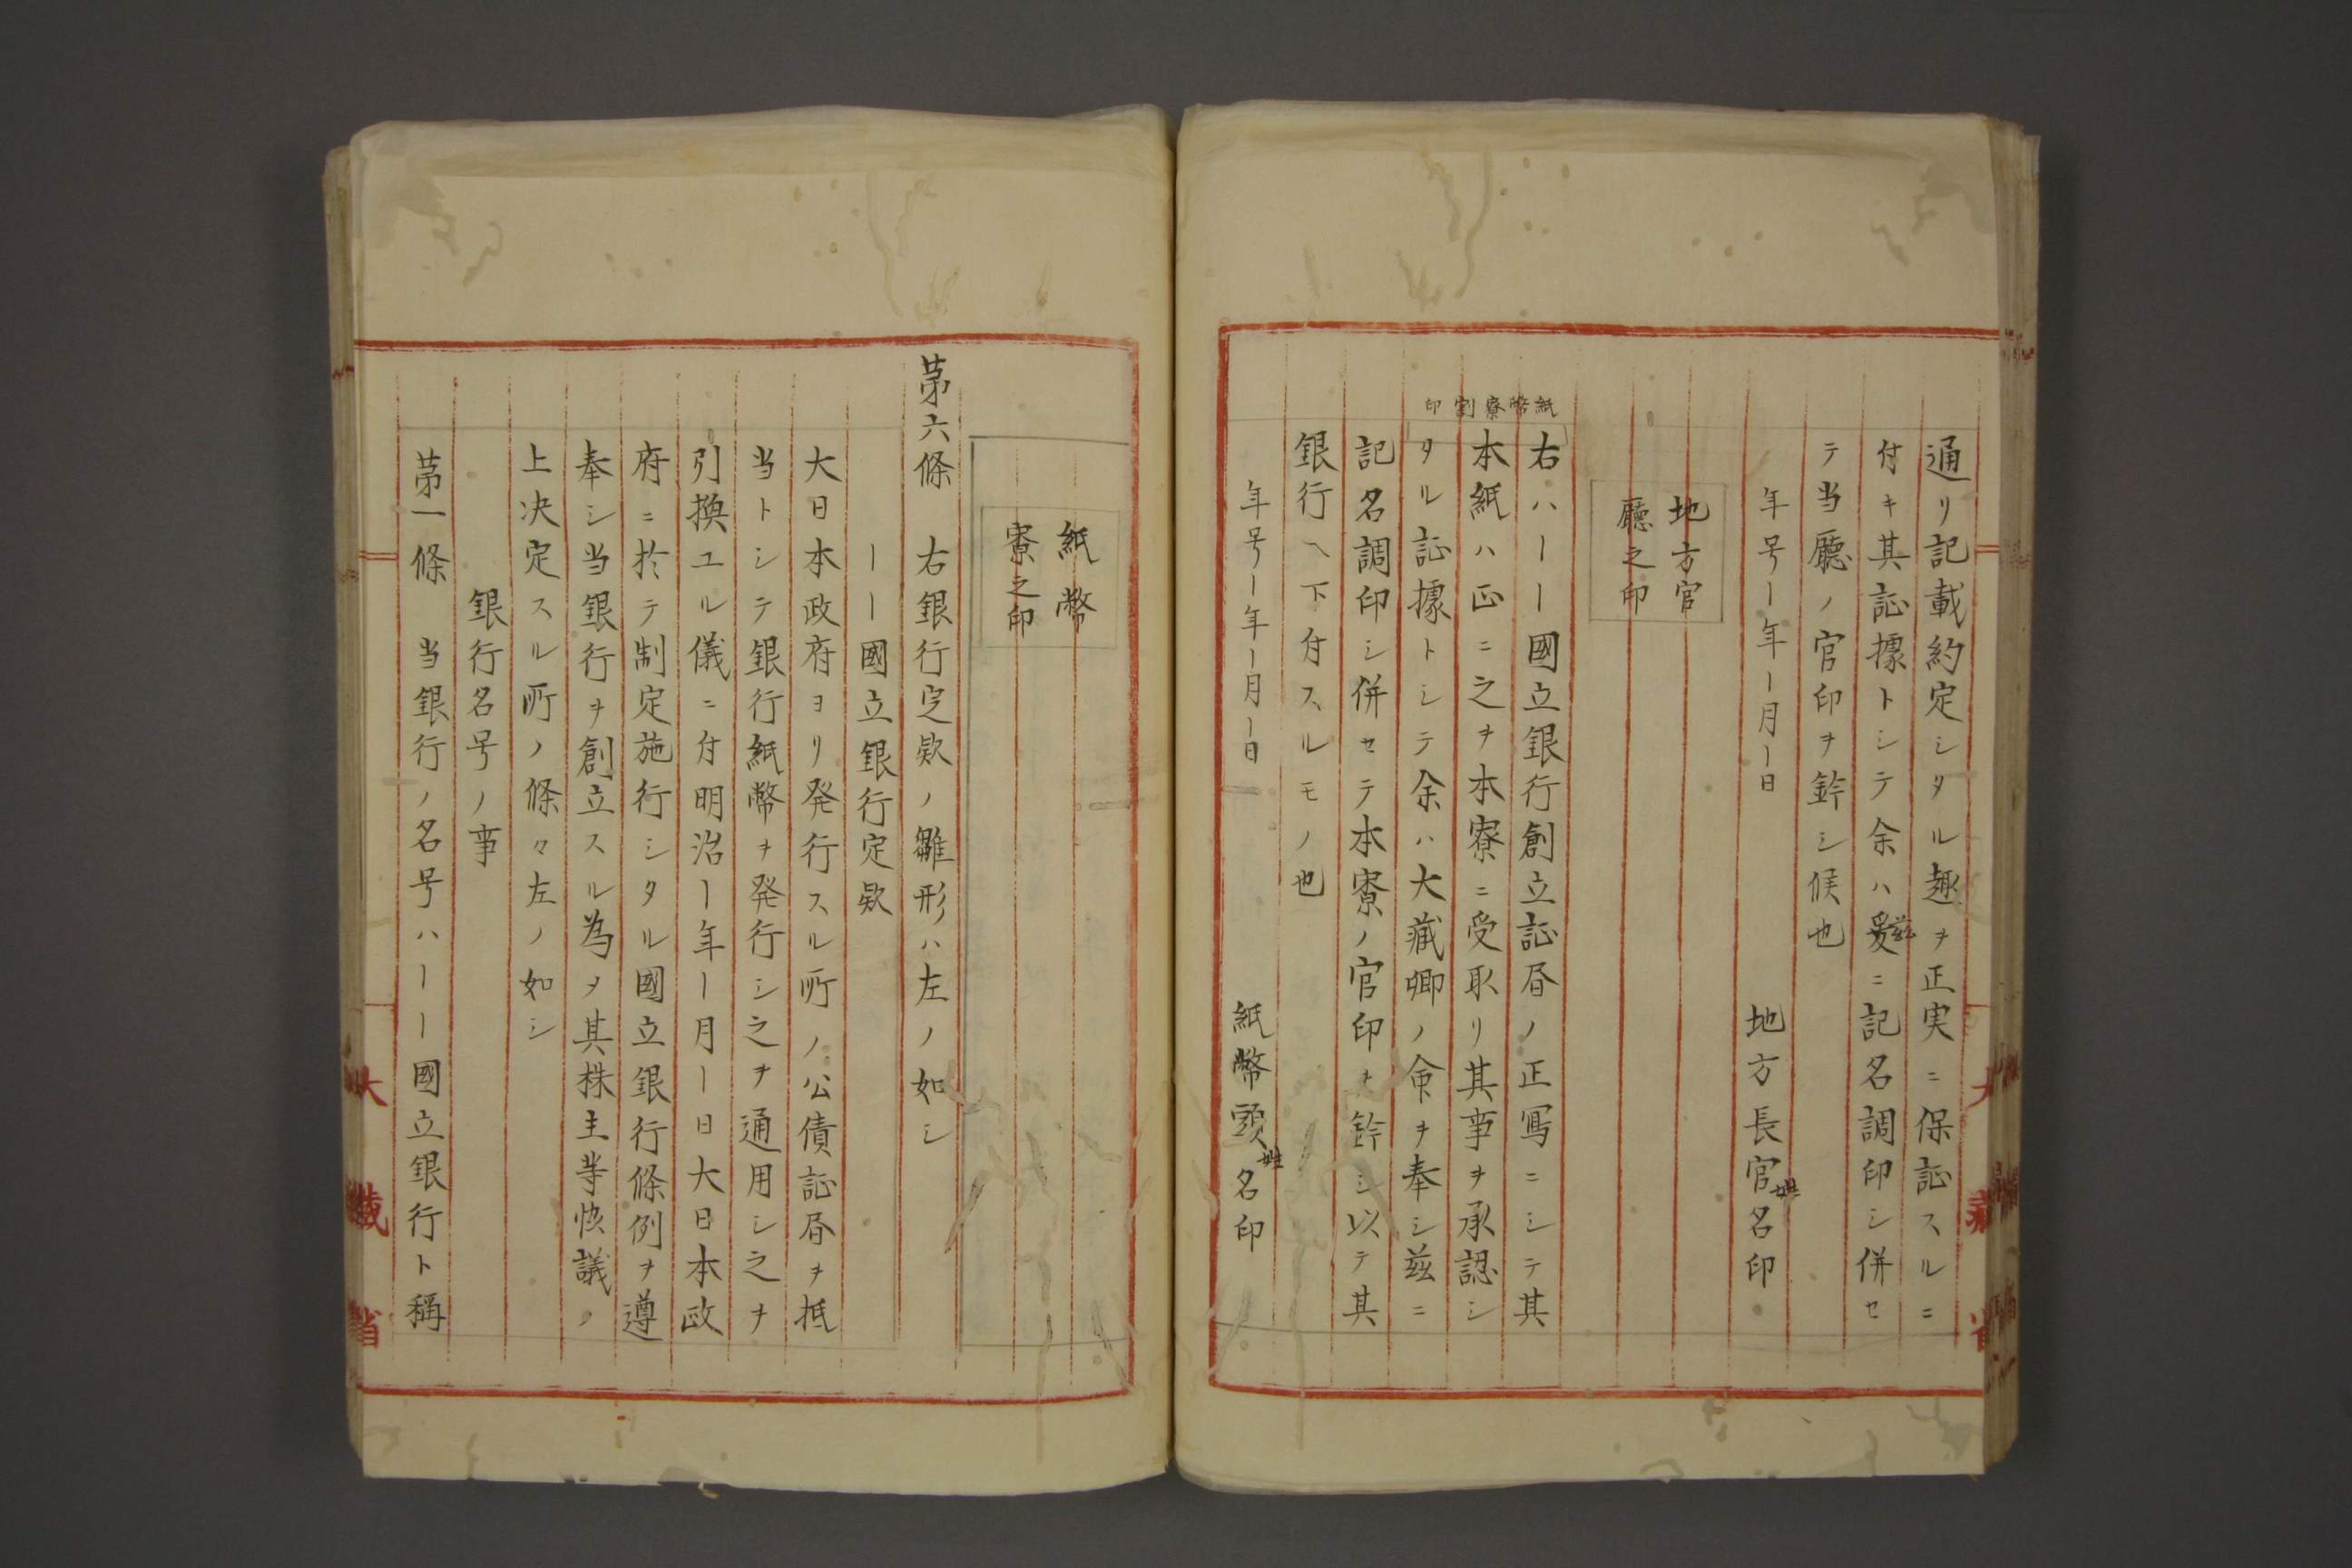 通リ記載約定シタル趣ヲ正実ニ保証スルニ
付キ其証據トシテ余ハ爰ニ記名調印シ併セ
茲
テ当廳ノ官印ヲ鈐シ候也
年号ー年ー月ー日　地方長官名印
姓
地方官
廳之印
紙幣寮割印
右ハーー國立銀行創立証昏ノ正写ニシテ其
本紙ハ正ニ之ヲ本寮ニ受取リ其事ヲ承認シ
タル証據トシテ余ハ大藏卿ノ命ヲ奉シ茲ニ
記名調印シ併セテ本寮ノ官印ヲ鈐シ以テ其
銀行ヘ下付スルモノ也
年号ー年ー月ー日　紙幣頭名印
姓
大藏省
紙幣
寮之印
第六條　右銀行定欵ノ雛形ハ左ノ如シ
ーー國立銀行定欵
大日本政府ヨリ発行スル所ノ公債証昏ヲ抵
当トシテ銀行紙幣ヲ発行シ之ヲ通用シ之ヲ
引換ユル儀ニ付明治ー年ー月ー日大日本政
府ニ於テ制定施行シタル國立銀行條例ヲ遵
奉シ当銀行ヲ創立スル為メ其株主等恊議ノ
上决定スル所ノ條々左ノ如シ
銀行名号ノ事
第一條　当銀行ノ名号ハーー國立銀行ト稱
大藏省